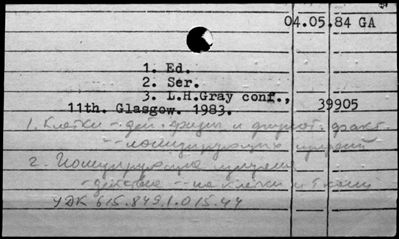 04.05.84 GA
1. Ed.
2. Ser.
3. L.H.Gray conf.,
11th. Glasgow. 1983. 39905
1. Клетки -- дей. физич. и фармакол. факт.
-- ионизирующих излучений
2. Ионизирующие излучения
- действие -- на клетки и ткани
УДК 615.849.1.015.44